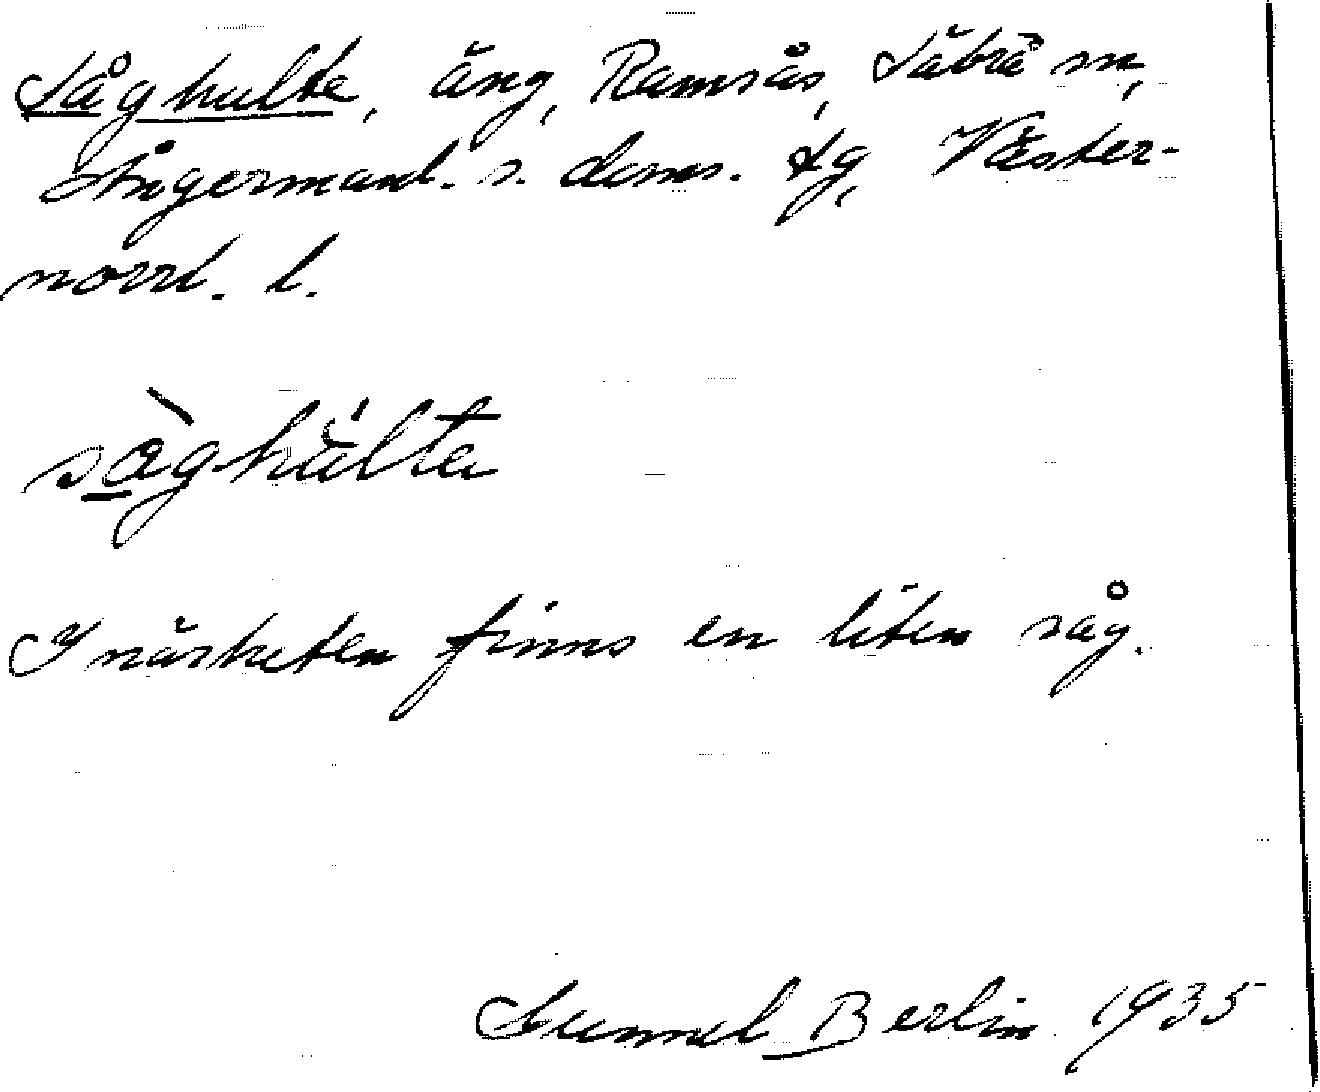 Såghulte, äng, Ramsås, Säbrå sn,
Ångermanl. s. doms. tg, Väster-
norrl. l.
sàghúlta
I närheten finns en liten såg.
Gunnel Berlin 1935